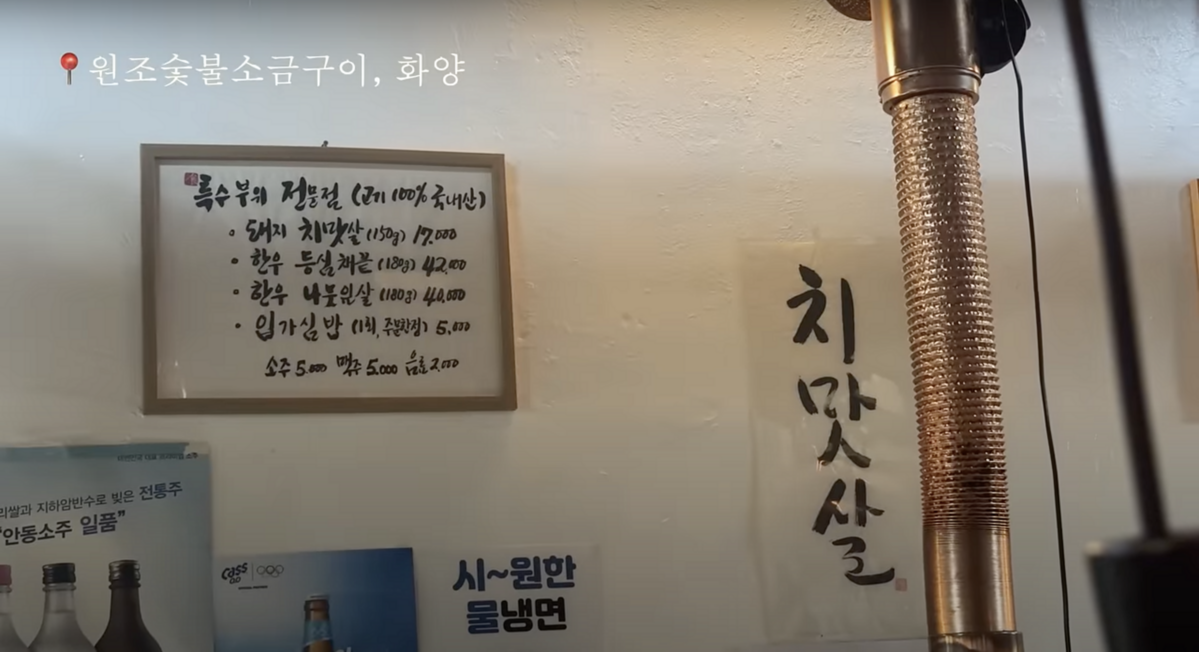 원조숯불소금구이, 화양
특수부위 전문점 (고기 100% 국내산)
• 돼지 치맛살 (150g) 17,000
• 한우 등심채끝 (180g) 42,000
• 한우 (180g) 40,000
• 입가심밥 5,000
소주 5,000 맥주 5,000 음료 2,000
치
맛
살
리쌀과 지하암반수로 빚은 전통주
"안동소주 일품"
Cass
0.0
시~원한
물냉면